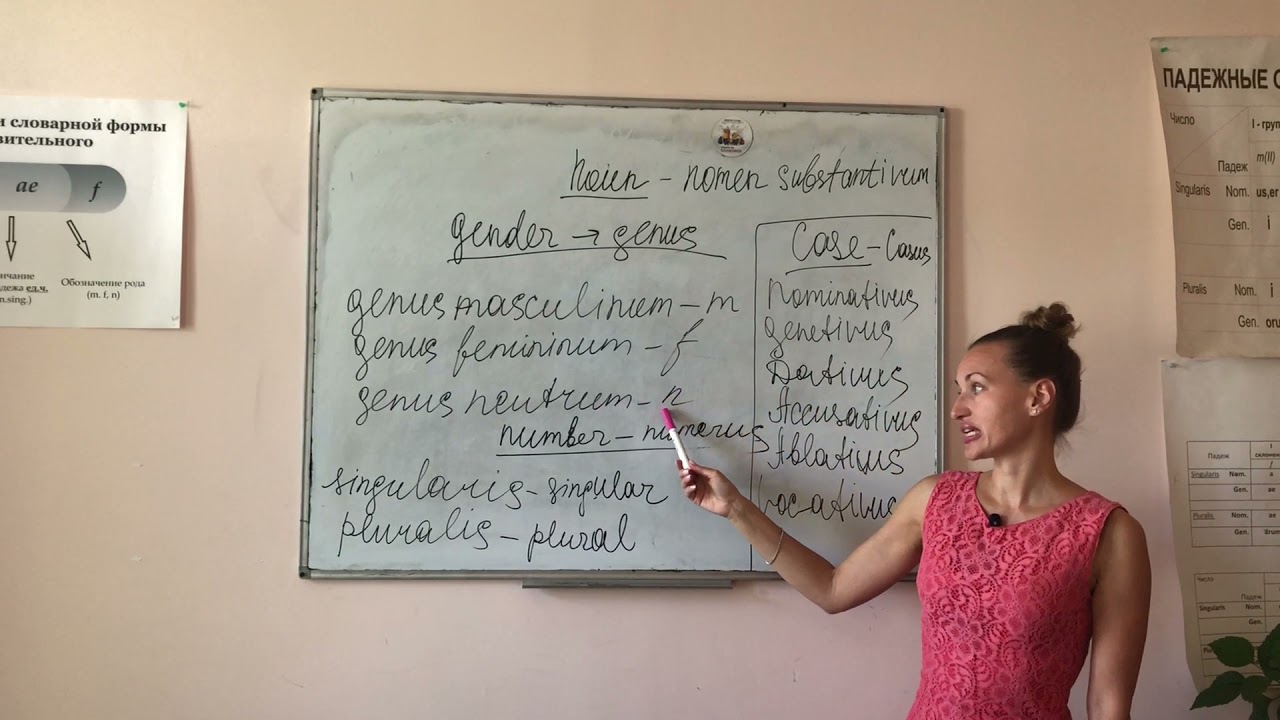 и словарной формы
вительного
ae f
нчание
дежа ед.ч.
n.sing.)
Обозначение рода
(m. f, n)
noun - nomen substantivum
gender → genus
genus masculinum - m
genus femininum - f
genus neutrum - n
number - numerus
singularis - singular
pluralis - plural
Case - Casus
Nominativus
Genetivus
Dativus
Accusativus
Ablativus
Locativus
ПАДЕЖНЫЕ
Число
I - груп
Падеж
m(II)
Singularis Nom. us,er
Gen. i
Pluralis Nom. i
Gen. oru
Падеж
склонен
I
f
Singularis Nom. a
Gen. ae
Pluralis Nom. ae
Gen.
Число
Падеж
Singularis Nom.
Gen.